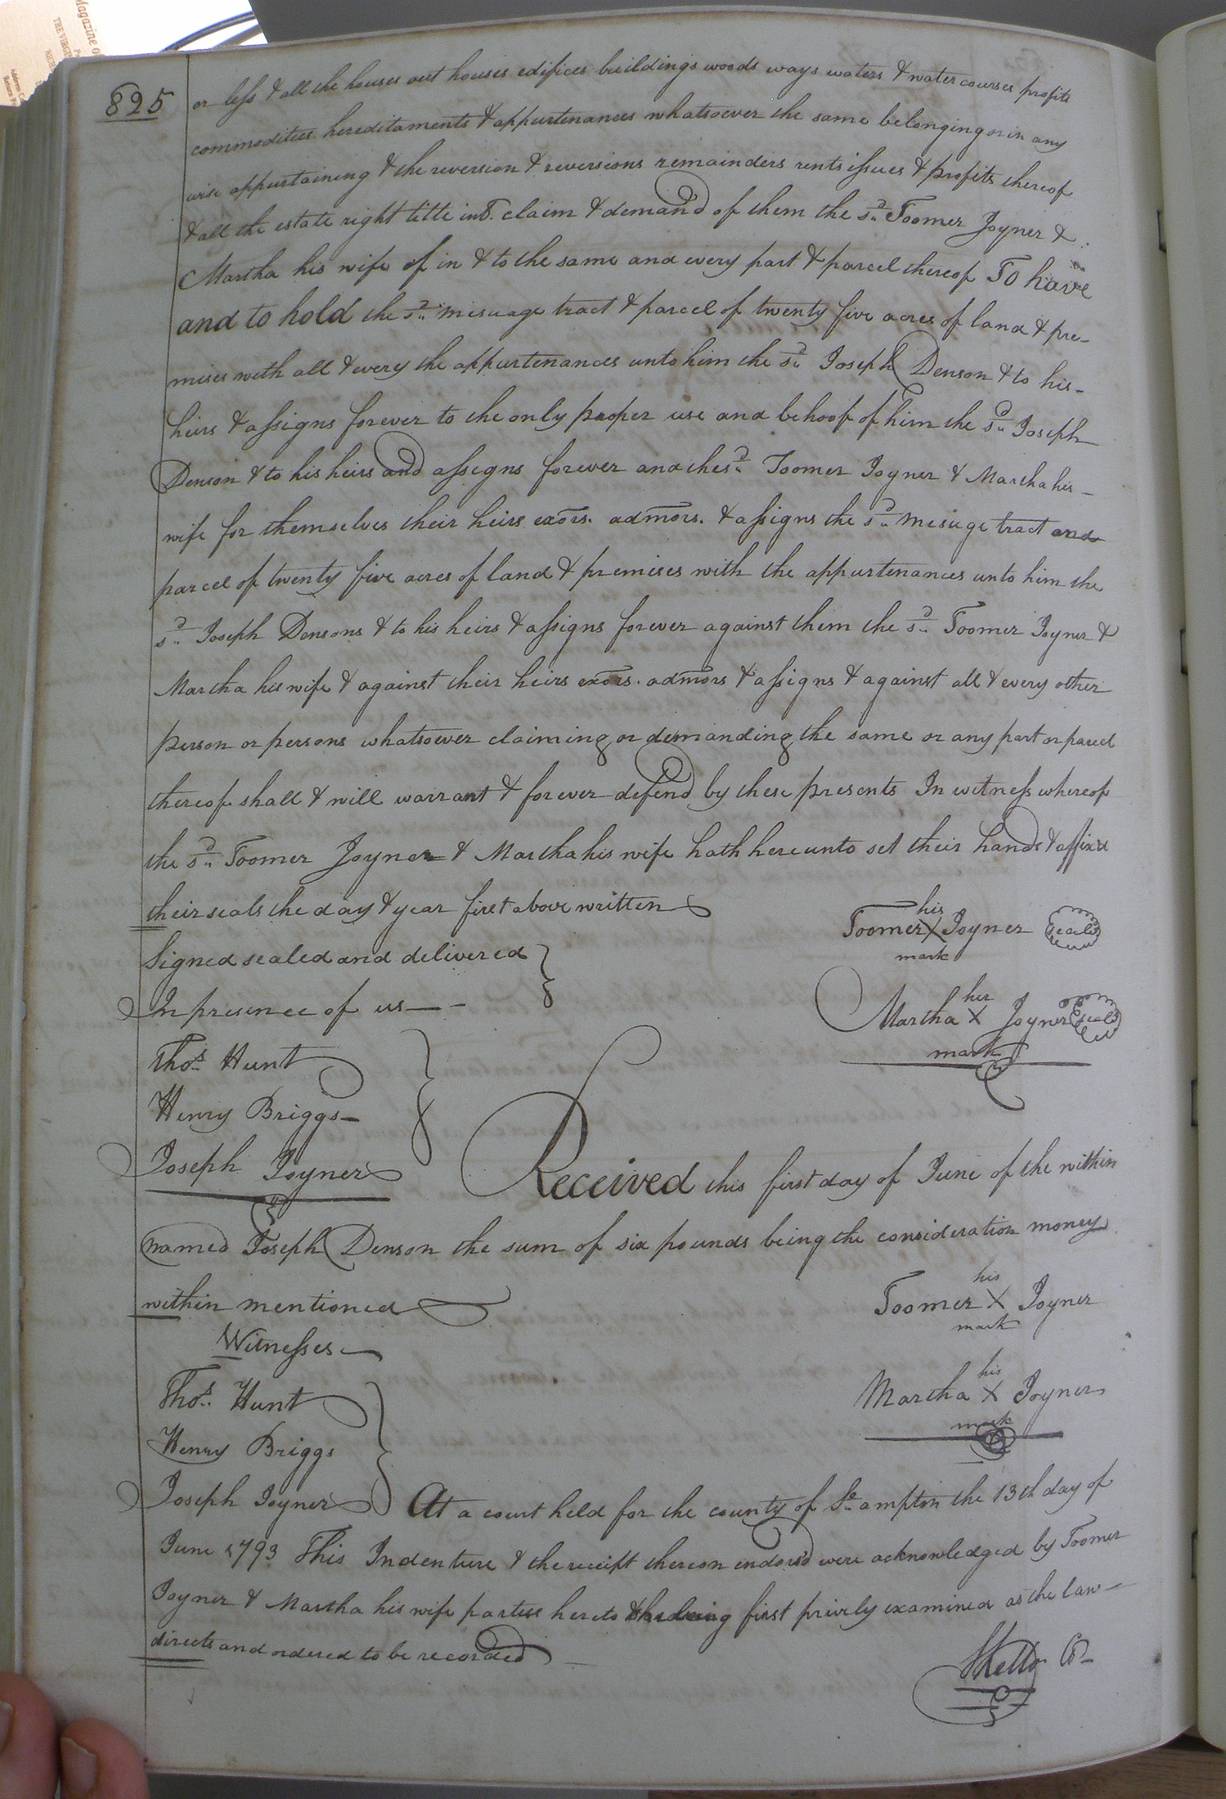 Magazine of
THE VIRGI
825
or less & all the houses out houses edifices buildings woods ways waters & water courses profits
commodities hereditaments & appurtenances whatsoever the same belonging or in any
wise appurtaining & the reversion & reversions remainders rents issues & profits thereof
& all the estate right title int. claim & demand of them the sd. Toomer Joyner &
Martha his wife of in & to the same and every part & parcel thereof To have
and to hold the sd. mesuage tract & parcel of twenty five acres of land & pre-
mises with all & every the appurtenances unto him the sd. Joseph Denson & to his-
heirs & assigns forever to the only proper use and behoof of him the sd. Joseph
Denson & to his heirs and assigns forever and the sd. Toomer Joyner & Martha his-
wife for themselves their heirs exors. admors. & assigns the sd. mesuage tract and
parcel of twenty five acres of land & premises with the appurtenances unto him the
sd. Joseph Densons & to his heirs & assigns forever against them the sd. Toomer Joyner &
Martha his wife & against their heirs exors. admors & assigns & against all & every other
person or persons whatsoever claiming or demanding the same or any part or parcel
thereof shall & will warrant & forever defend by these presents In witness whereof
the sd. Toomer Joyner & Martha his wife hath hereunto set their hands & affix'd
their seals the day & year first above written
his
Toomer X Joyner Seals
mark
Signed sealed and delivered
In presence of us--
her
Martha X Joyner Seals
mark
Thos. Hunt
Henry Briggs-
Joseph Joyner
Received this first day of June of the within
named Joseph Denson the sum of six pounds being the consideration money
within mentioned
his
Toomer X Joyner
mark
Witnesses-
Thos. Hunt
his
Martha X Joyner
mark
Henry Briggs
Joseph Joyner
At a court held for the county of So.ampton the 13th day of
June 1793 This Indenture & the receipt thereon endors'd were acknowledged by Toomer
Joyner & Martha his wife parties hereto being first privily examined as the law-
directs and ordered to be recorded